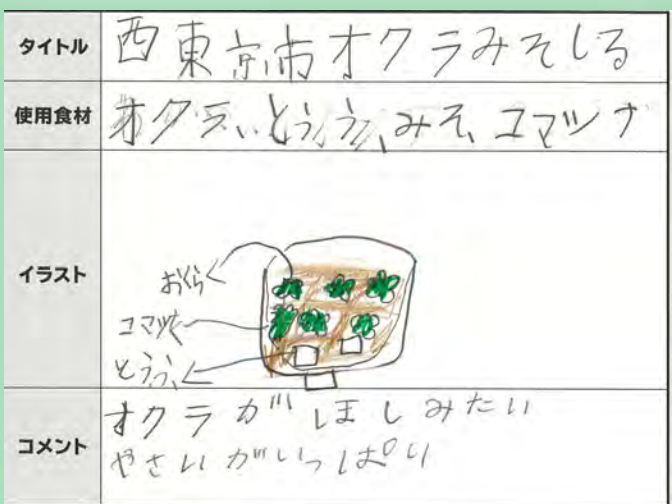 タイトル
西東京市オクラみそしる
使用食材
オクラ、とうふ、みそ、コマツナ
イラスト
おくら
コマツナ
とうふ
コメント
オクラがほしみたい
やさいがいっぱい